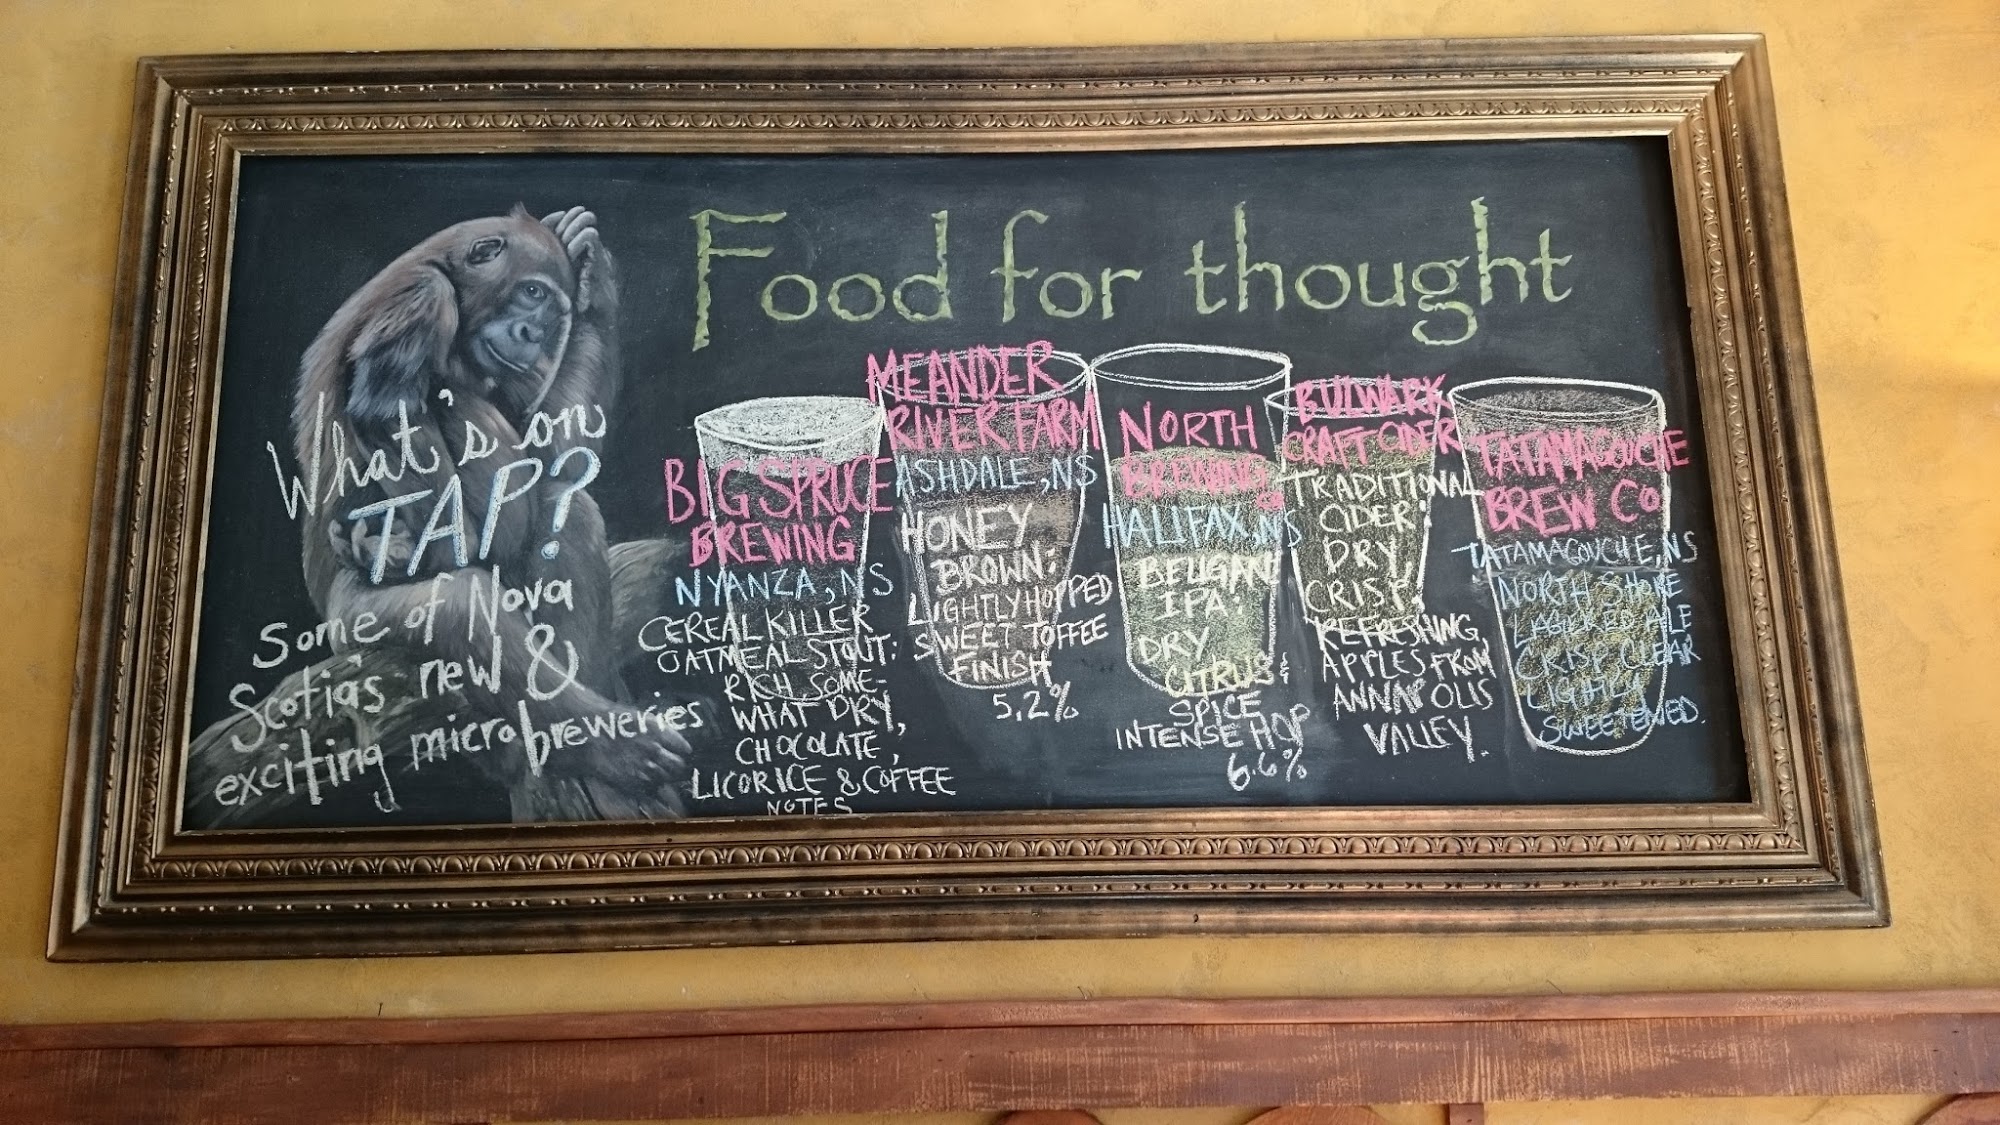 Food for thought
What's on
TAP?
Some of Nova
Scotia's new &
exciting microbreweries
BIG SPRUCE
BREWING
NYANZA, NS
CEREAL KILLER
OATMEAL STOUT:
RICH SOME-
WHAT DRY,
CHOCOLATE,
LICORICE & COFFEE
NOTES
MEANDER
RIVER FARM
ASHDALE, NS
HONEY
BROWN:
LIGHTLY HOPPED
SWEET TOFFEE
FINISH
5.2%
NORTH
BREWING
CO
HALIFAX, NS
BELIGAN
IPA:
DRY
CITRUS &
SPICE
INTENSE HOP
6.6%
BULWARK
CRAFT CIDER
TRADITIONAL
CIDER:
DRY,
CRISP,
REFRESHING,
APPLES FROM
ANNAPOLIS
VALLEY.
TATAMAGOUCHE
BREW CO
TATAMAGOUCHE, NS
NORTH SHORE
LAGERED ALE
CRISP CLEAR
LIGHTLY
SWEETENED.